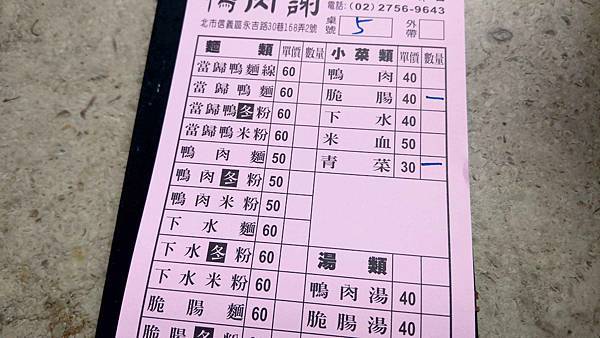 鴨肉謝
電話:(02)2756-9643
北市信義區永吉路30巷168弄2號
桌號 5 外帶
麵類 單價 數量 小菜類 單價 數量
當歸鴨麵線 60 鴨肉 40
當歸鴨麵 60 脆腸 40 一
當歸鴨冬粉 60 下水 40
當歸鴨米粉 60 米血 50
鴨肉麵 50 青菜 30 一
鴨肉冬粉 50
鴨肉米粉 50
下水麵 60
下水冬粉 60 湯類
下水米粉 60 鴨肉湯 40
脆腸麵 60 脆腸湯 40
脆腸冬粉